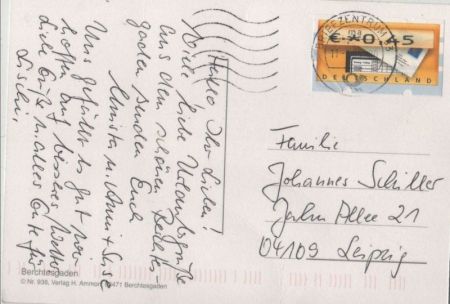 Hallo, Ihr Lieben!
Viele liebe Urlaubsgrüße
aus dem schönen Berchtes-
gaden senden Euch
Christa u. Anni + Susi
Uns gefällt es gut wir
hoffen auf bisschen
Liebe Grüße u. alles Gute für
BRIEFZENTRUM
€ 0,45
DEUTSCHLAND
Familie
Johannes Schüller
Jahn Allee 21
04109 Leipzig
Berchtesgaden
© Nr. 936, Verlag H. Ammon, 83471 Berchtesgaden